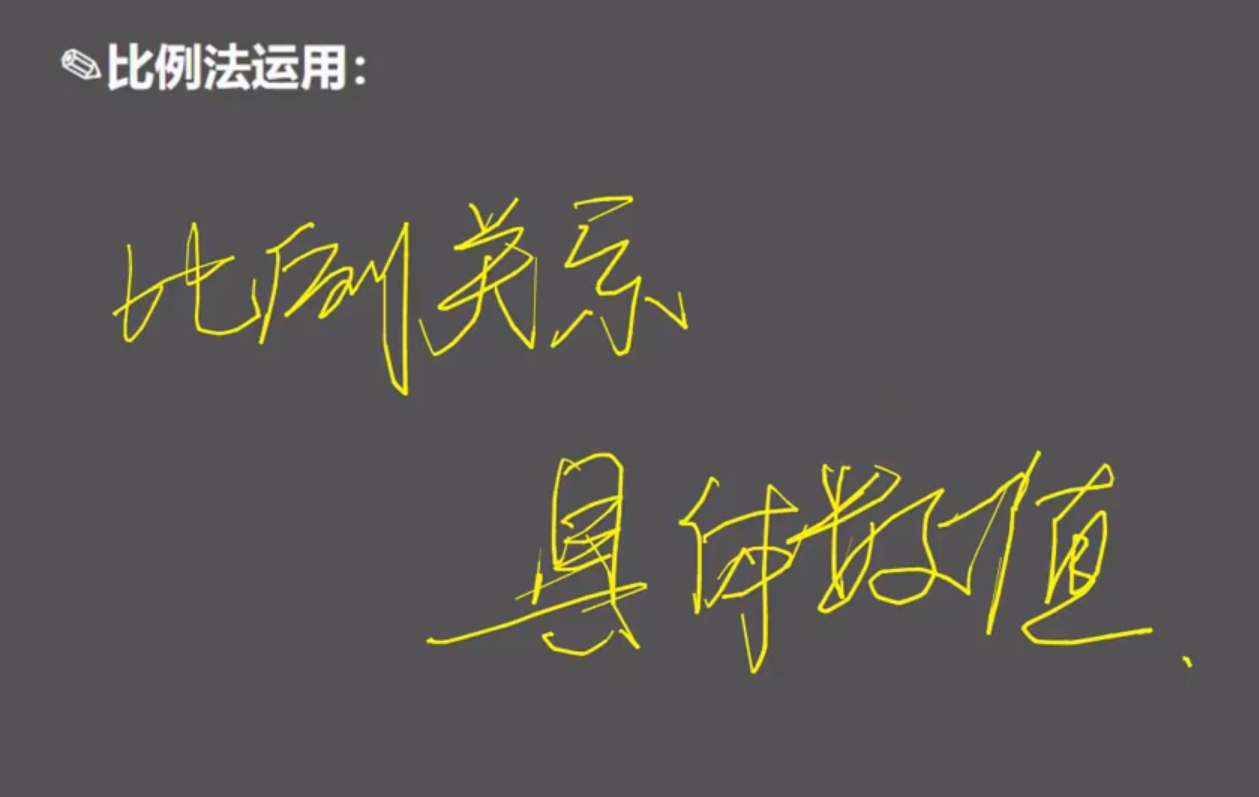 比例法运用：
比例关系
具体数值、